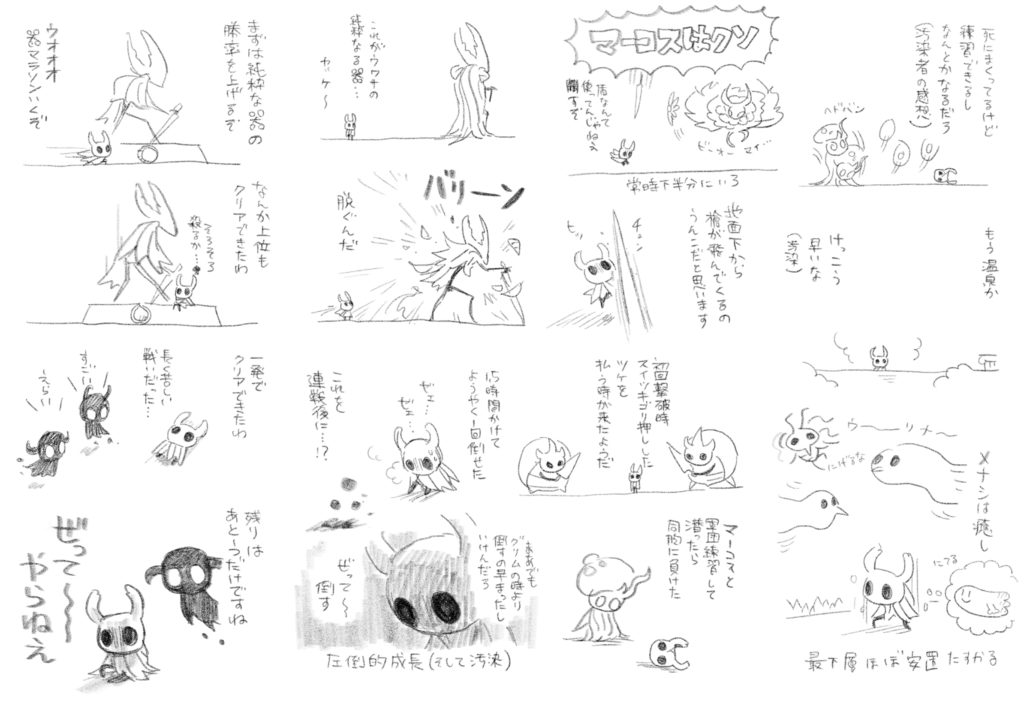 死にまくってるけど
練習できるし
なんとかなるだろ
(汚染者の感想)
ヘドバン
もう温泉か
けっこう
早いな
(汚染)
メナシは癒し
ウーリナ〜
にげるな
にてる
最下層ほぼ安置たすかる
マーコスはクソ
盾なんて
使ってんじゃねぇ
闘すぞ
ビーオー マイゾ
常時下半分にいろ
地面下から
槍が飛んでくるの
うんこだと思います
チュン
ヒッ
初回撃破時
スイッチゴリ押しした
ツケを
払う時が来たようだ
マーコスと
軍団練習して
潜ったら
同胞に負けた
これがウワサの
純粋なる器…
カッケ〜
バリーン
脱ぐんだ
15時間かけて
ようやく1回倒せた
ゼェ…
ゼェ…
これを
連戦後に…!?
まあでも
グリムの時より
倒すの早まったし
いけんだろ
ぜって〜
倒す
圧倒的成長(そして汚染)
まずは純粋な器の
勝率を上げるぞ
ウオオオ
器マラソンいくぞ
なんか上位も
クリアできたわ
そろそろ
殺るか…
一発で
クリアできたわ
長く苦しい
戦いだった…
すごい
えらい
残りは
あと一つだけですね
ぜって〜〜
やらねえ